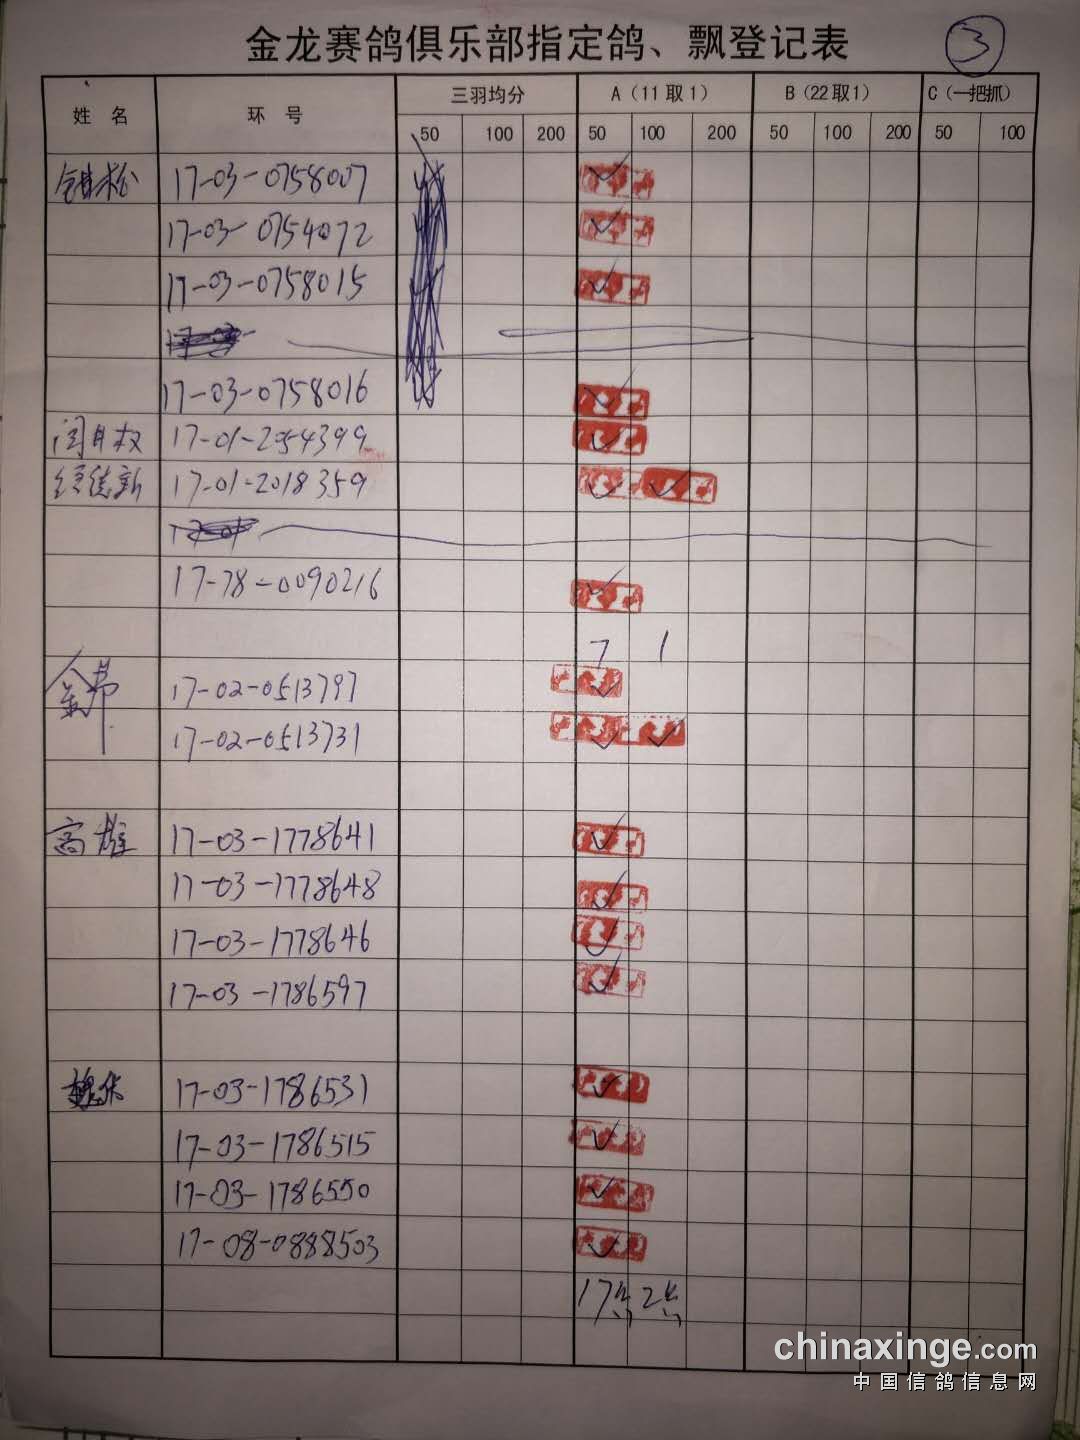 金龙赛鸽俱乐部指定鸽、飘登记表 3
姓 名 环 号 三羽均分 A(11取1) B(22取1) C(一把抓)
50 100 200 50 100 200 50 100 200 50 100
17-03-0758007
17-03-0754072
17-03-0758015
17-03-0758016
17-01-2054399
17-01-2018359
17-78-0090216
7 1
17-02-0513797
17-02-0513731
高雄 17-03-1778641
17-03-1778648
17-03-1778646
17-03-1786597
17-03-1786531
17-03-1786515
17-03-1786550
17-08-0888503
17点 2点
chinaxinge.com
中国信鸽信息网